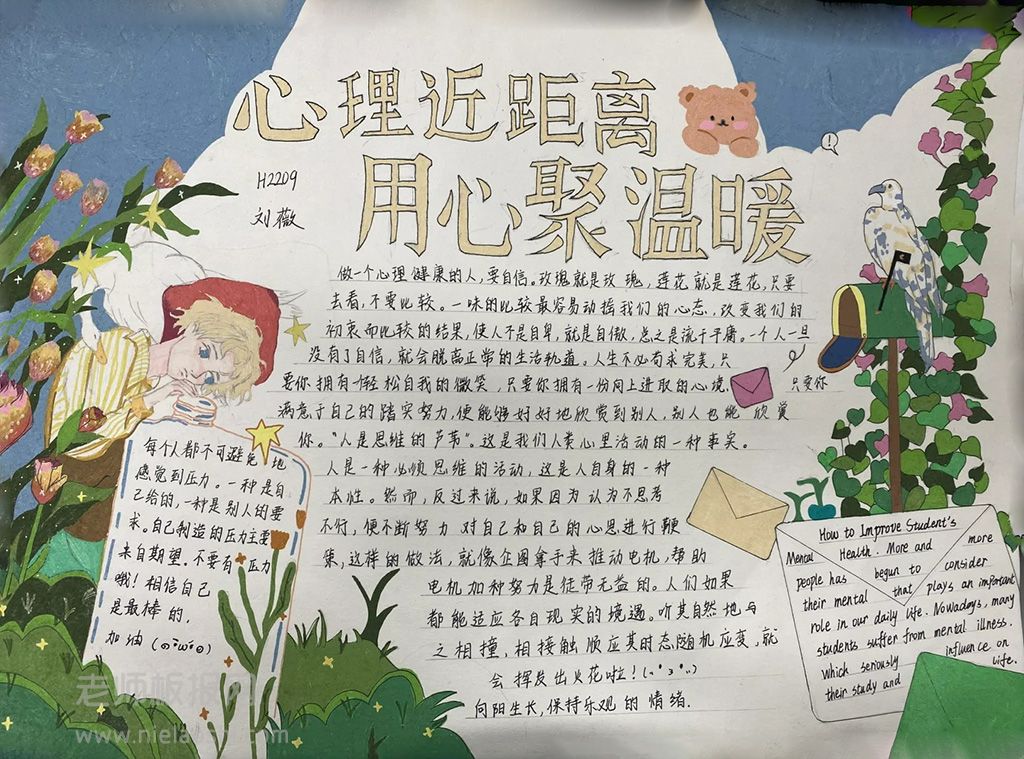 心理近距离
用心聚温暖
H2209
刘薇
做一个心理健康的人,要自信。玫瑰就是玫瑰,莲花就是莲花,只要
去看,不要比较。一味的比较最容易动摇我们的心态,改变我们的
初衷而比较的结果,使人不是自卑,就是自傲,总之是流于平庸。一个人一旦
没有了自信,就会脱离正常的生活轨道。人生不必苛求完美,只
要你拥有轻松自我的微笑,只要你拥有一份向上进取的心境, 只要你
满意于自己的踏实努力,便能够好好地欣赏到别人,别人也能欣赏
你。“人是思维的芦苇”。这是我们人类心里活动的一种事实。
人是一种必须思维的活动,这是人自身的一种
本性。然而,反过来说,如果因为认为不思考
不行,便不断努力对自己和自己的心思进行鞭
策,这样的做法,就像企图拿手来推动电机,帮助
电机加种努力是徒带无益的。人们如果
都能适应各自现实的境遇。听其自然地与
之相撞,相接触顺应其时态随机应变,就
会挥发出火花啦!
向阳生长,保持乐观的情绪.
每个人都不可避免地
感觉到压力。一种是自
己给的,一种是别人的要
求。自己制造的压力主要
来自期望。不要有压力
哦!相信自己
是最棒的,
加油
How to Improve Student's
Mental Health. More and more
people has begun to consider
their mental that plays an important
role in our daily life. Nowadays, many
students suffer from mental illness.
which seriously influence on
their study and life.
老师板报网
www.nielaoshi.com